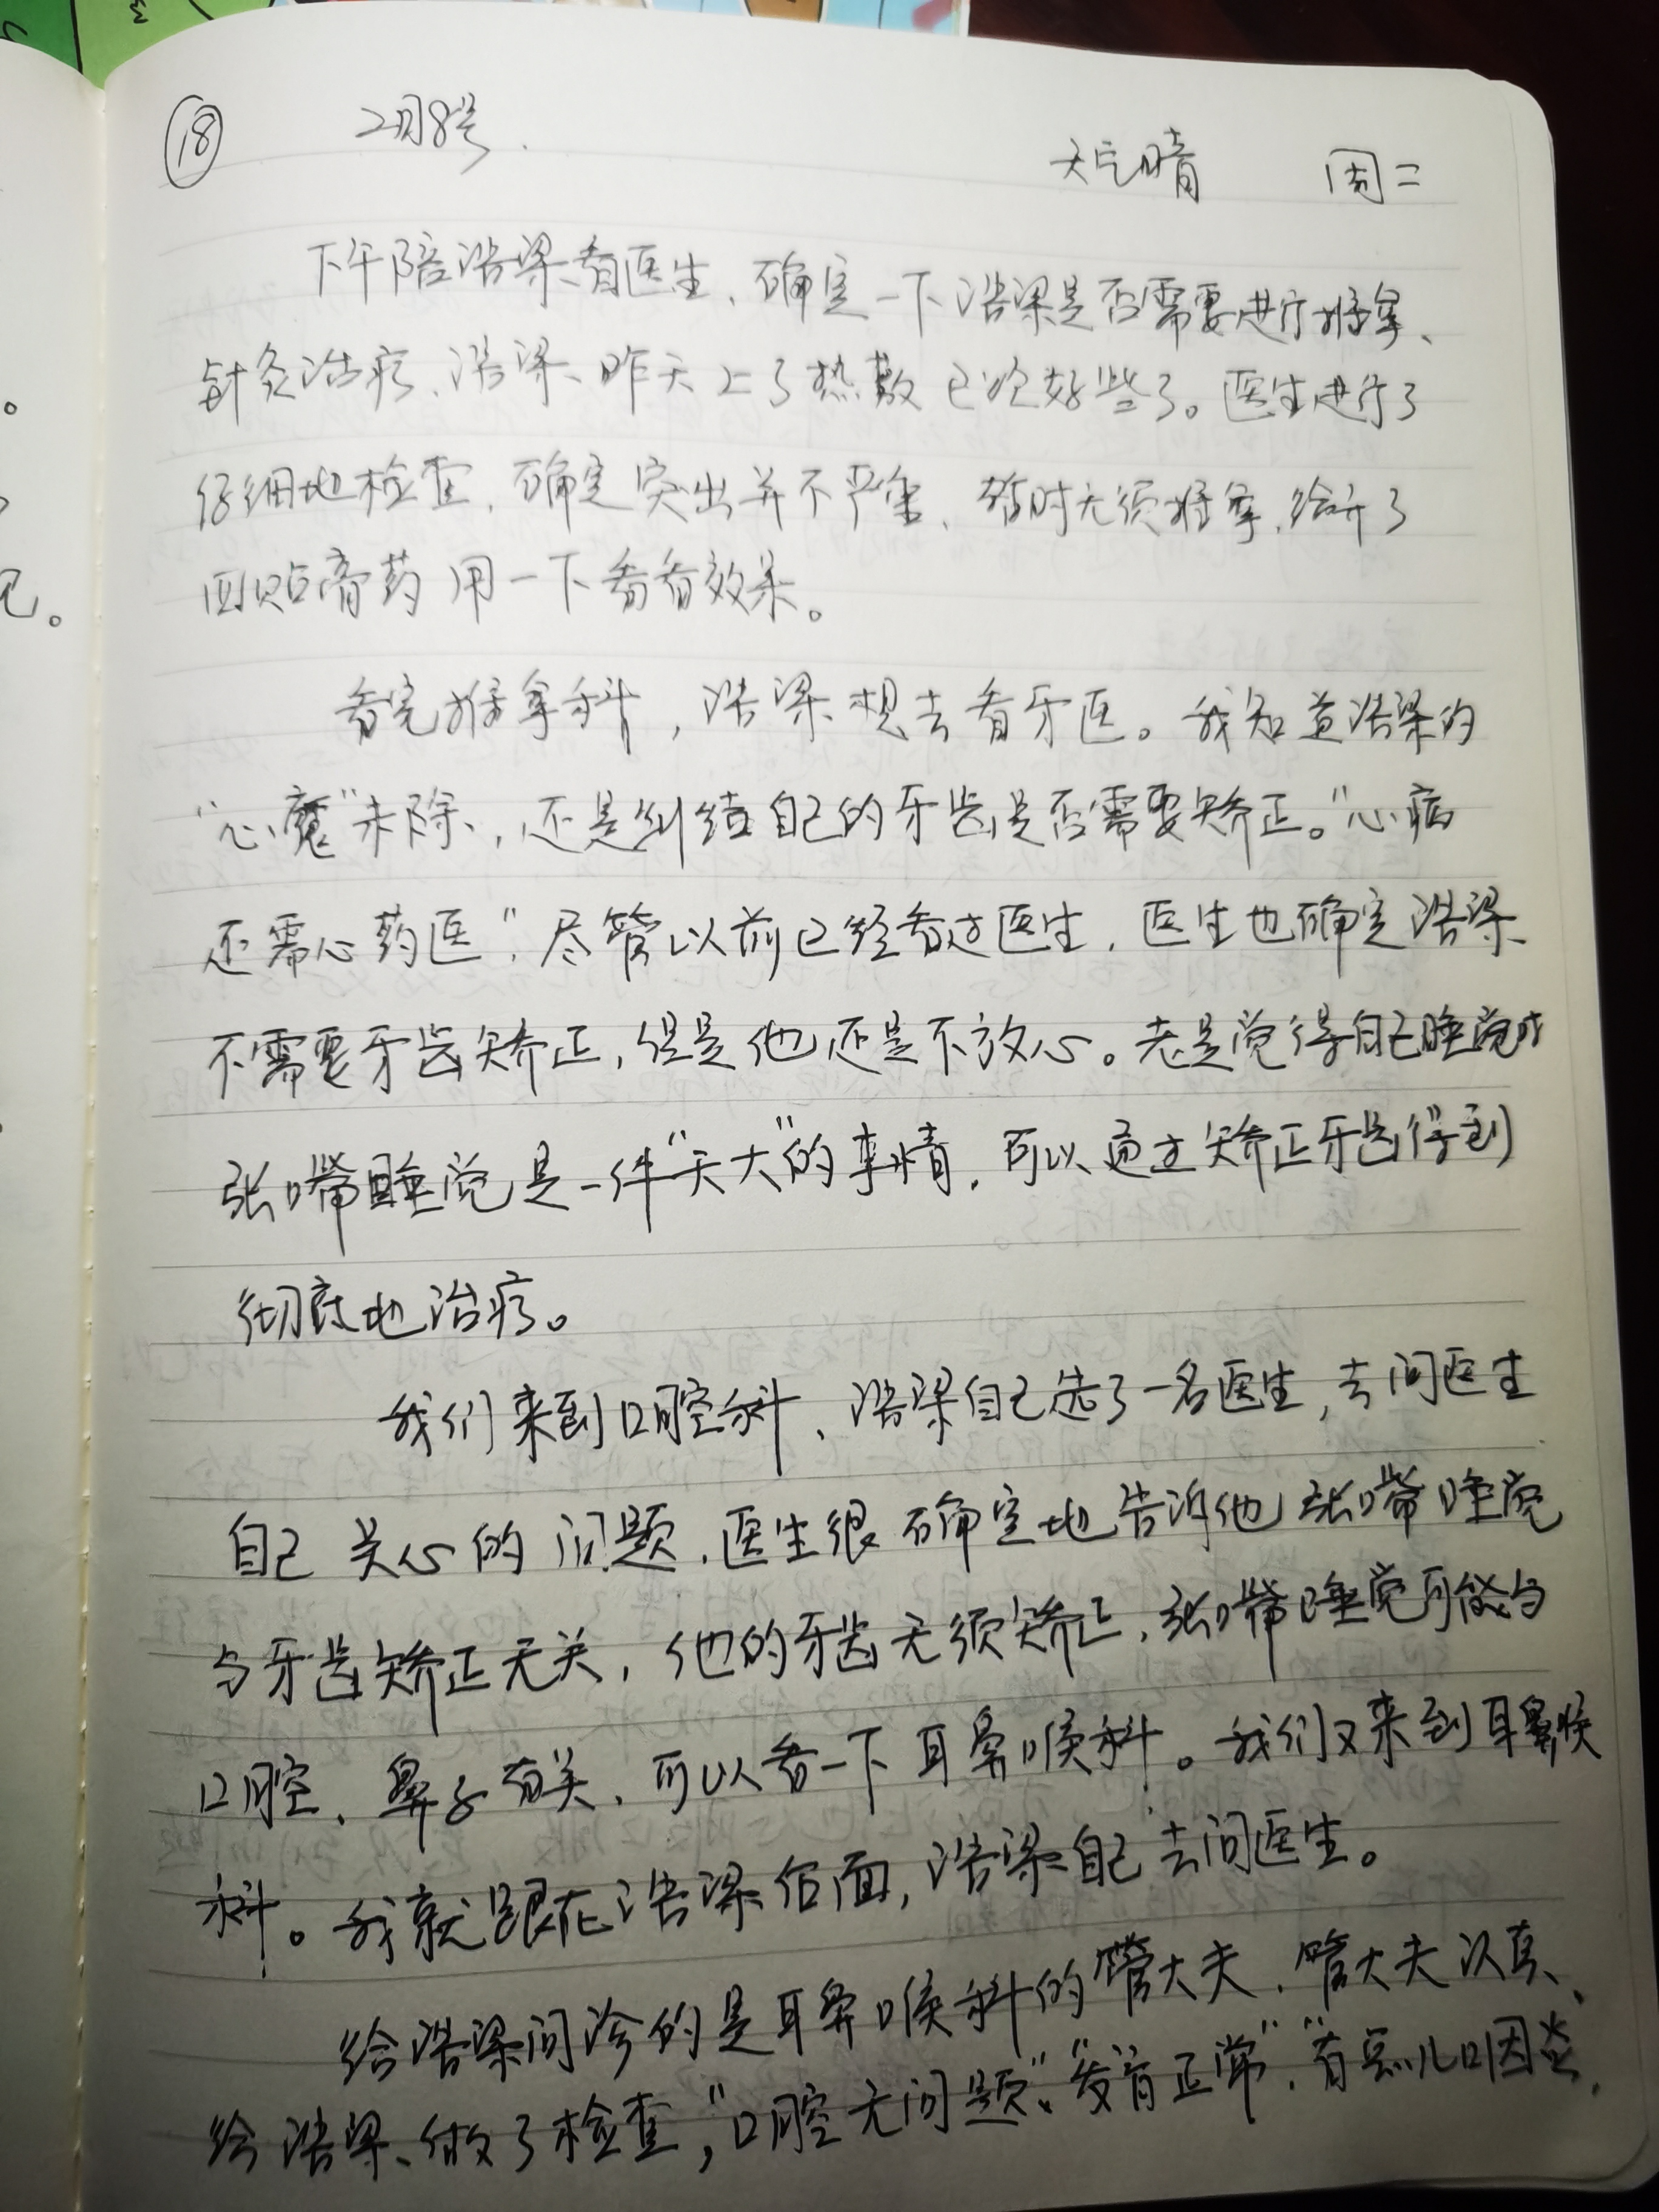 18 2月8号. 天气晴 周二
下午陪浩梁看医生、确定一下浩梁是否需要进行推拿、
针灸治疗、浩梁昨天上了热敷已经好些了。医生进行了
仔细地检查，确定突出并不严重、暂时无须推拿，给开了
四贴膏药用一下看看效果。
看完推拿科，浩梁想去看牙医。我知道浩梁的
“心魔”未除，还是纠结自己的牙齿是否需要矫正。“心病
还需心药医”，尽管以前已经看过医生，医生也确定浩梁
不需要牙齿矫正，但是他还是不放心。老是觉得自己睡觉时
张嘴睡觉是一件“天大”的事情，可以通过矫正牙齿得到
彻底地治疗。
我们来到口腔科、浩梁自己选了一名医生，去问医生
自己关心的问题，医生很确定地告诉他张嘴睡觉
与牙齿矫正无关，他的牙齿无须矫正，张嘴睡觉可能与
口腔、鼻子有关，可以看一下耳鼻喉科。我们又来到耳鼻喉
科。我就跟在浩梁后面，浩梁自己去问医生。
给浩梁问诊的是耳鼻喉科的管大夫，管大夫认真、
给浩梁做了检查，“口腔无问题”、“发育正常”，“有点儿咽炎，